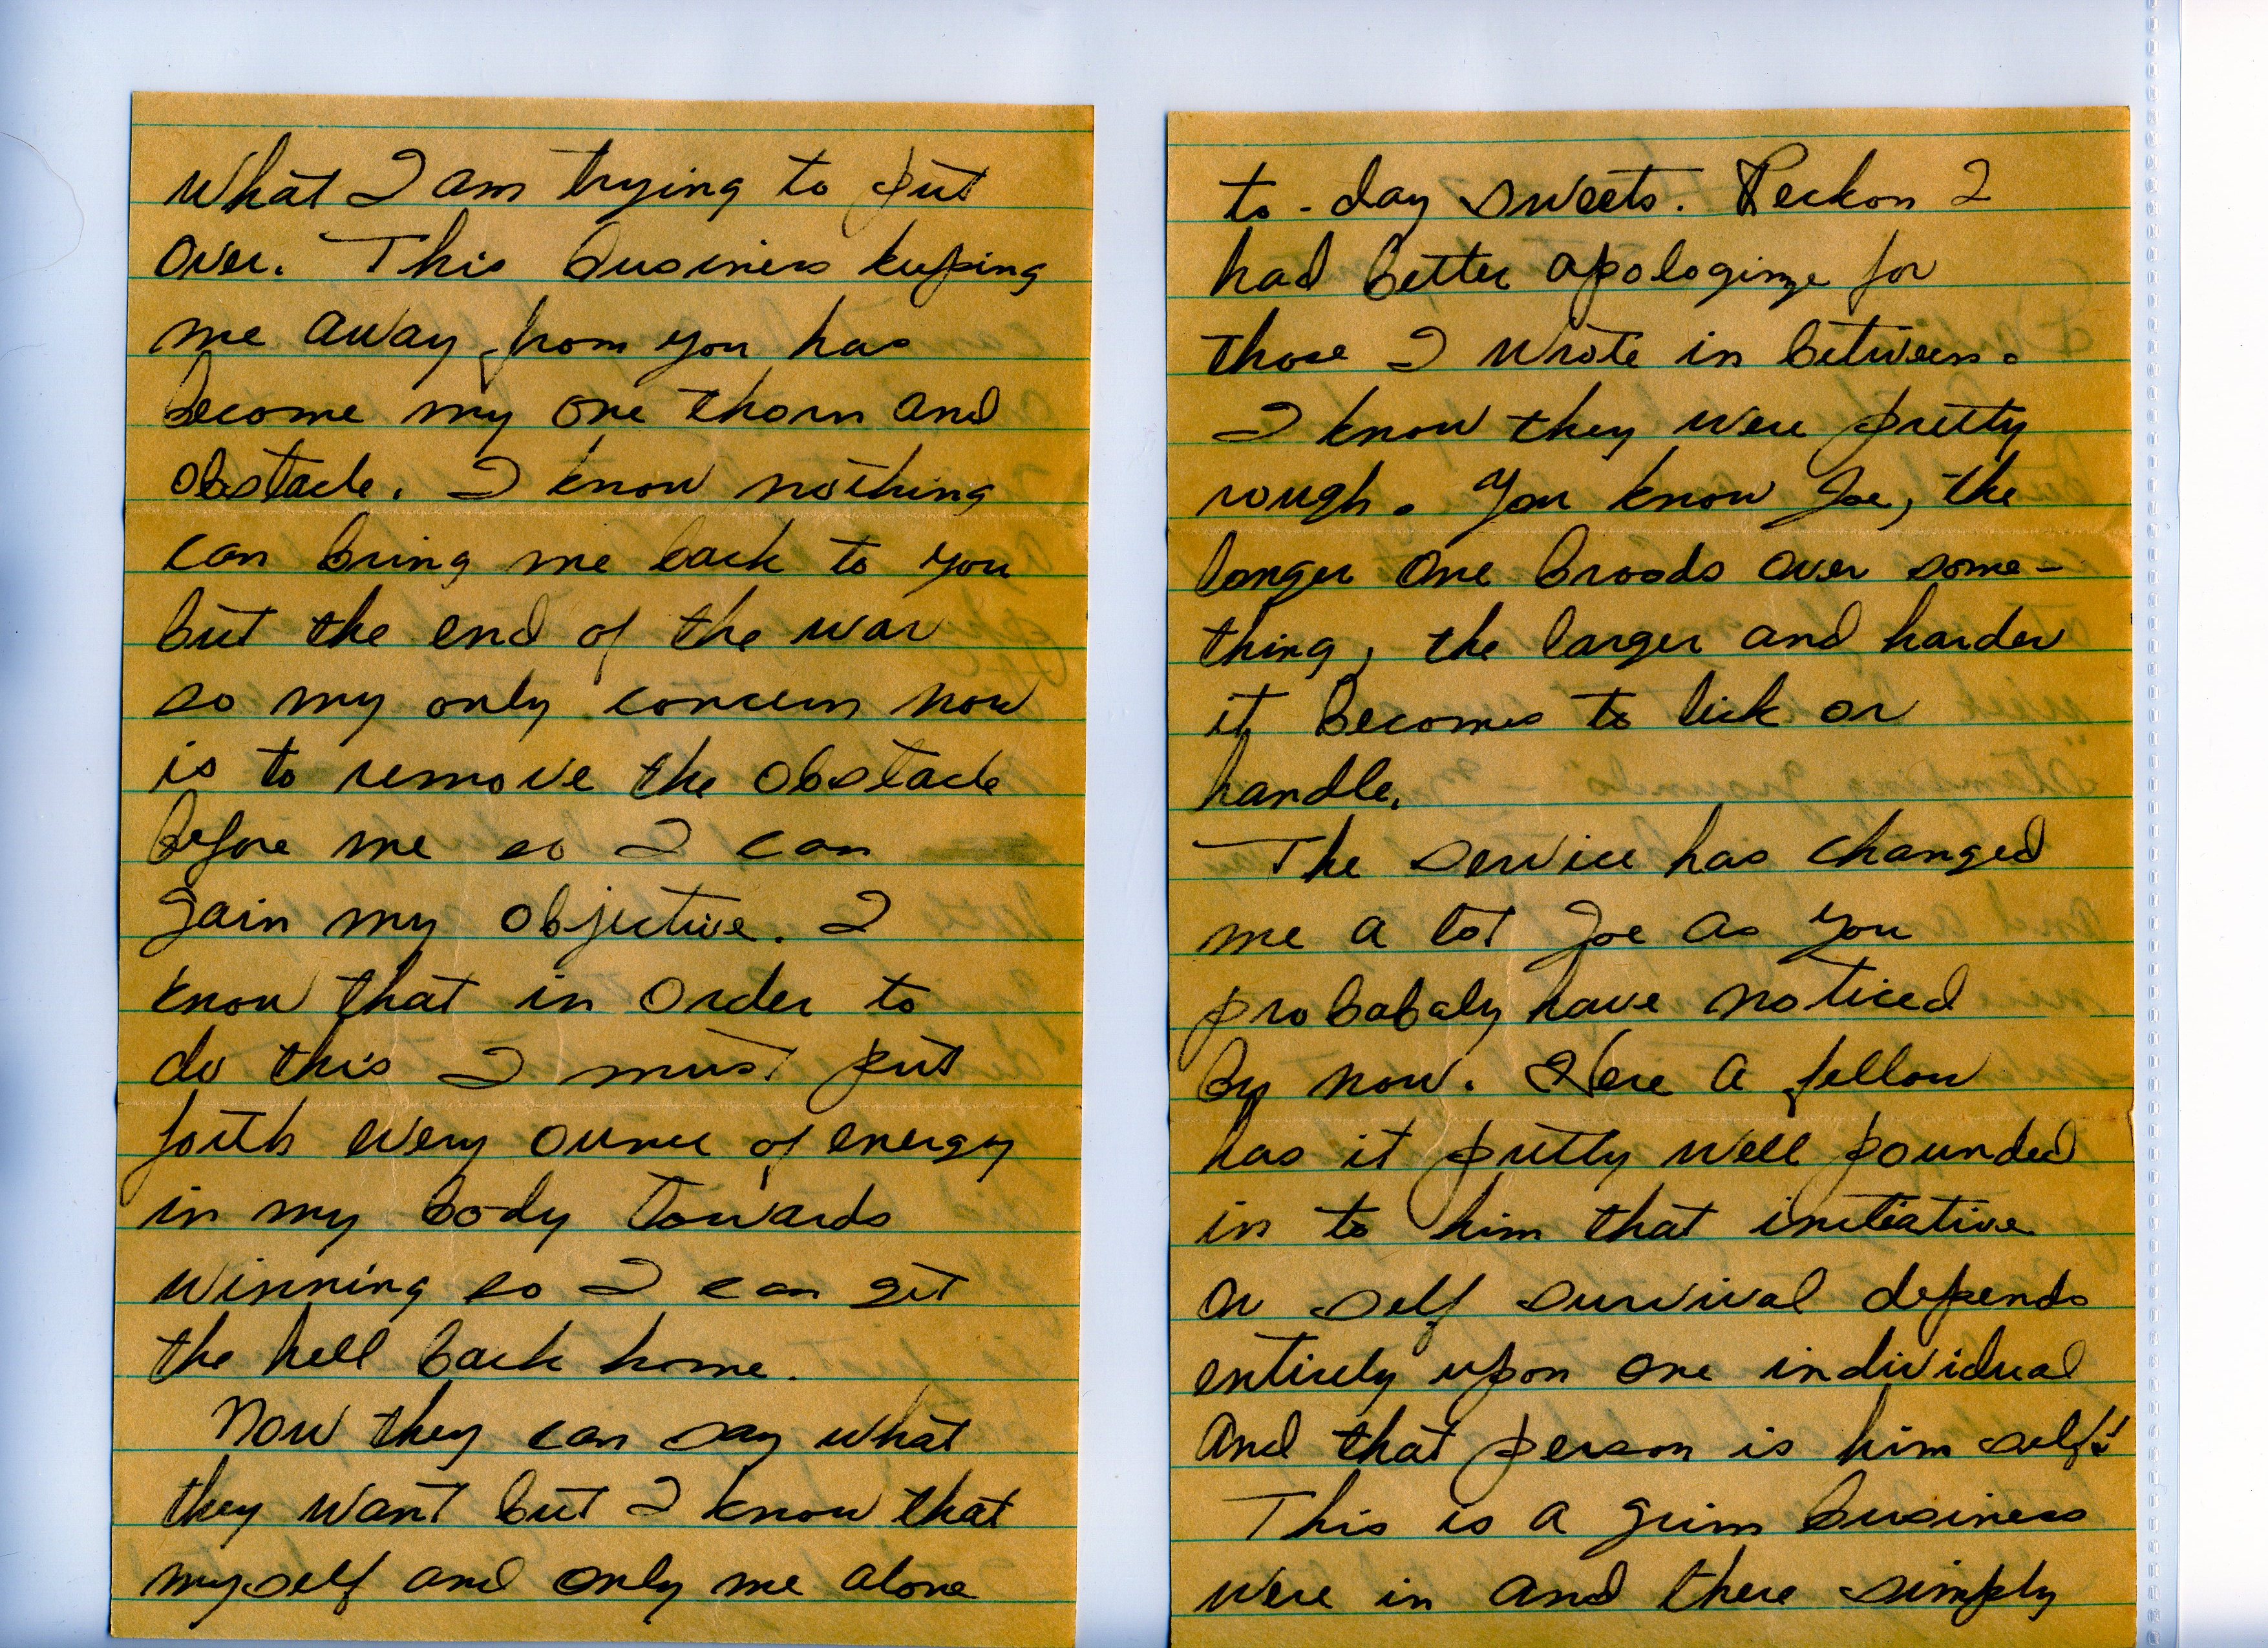 What I am trying to put
over. This business keeping
me away from you has
become my one thorn and
obstacle. I know nothing
can bring me back to you
but the end of the war
so my only concern now
is to remove the obstacle
before me so I can
gain my objective. I
know that in order to
do this I must put
forth every ounce of energy
in my body towards
winning so I can get
the hell back home.
Now they can say what
they want but I know that
myself and only me alone
to-day sweets. Reckon I
had better apologize for
those I wrote in between.
I know they were pretty
rough. You know Joe, the
longer one broods over some-
thing, the larger and harder
it becomes to lick or
handle.
The service has changed
me a lot Joe as you
probabaly have noticed
by now. Here a fellow
has it pretty well pounded
in to him that initiative
or self survival depends
entirely upon one individual
And that person is him self!!
This is a grim business
were in and there simply